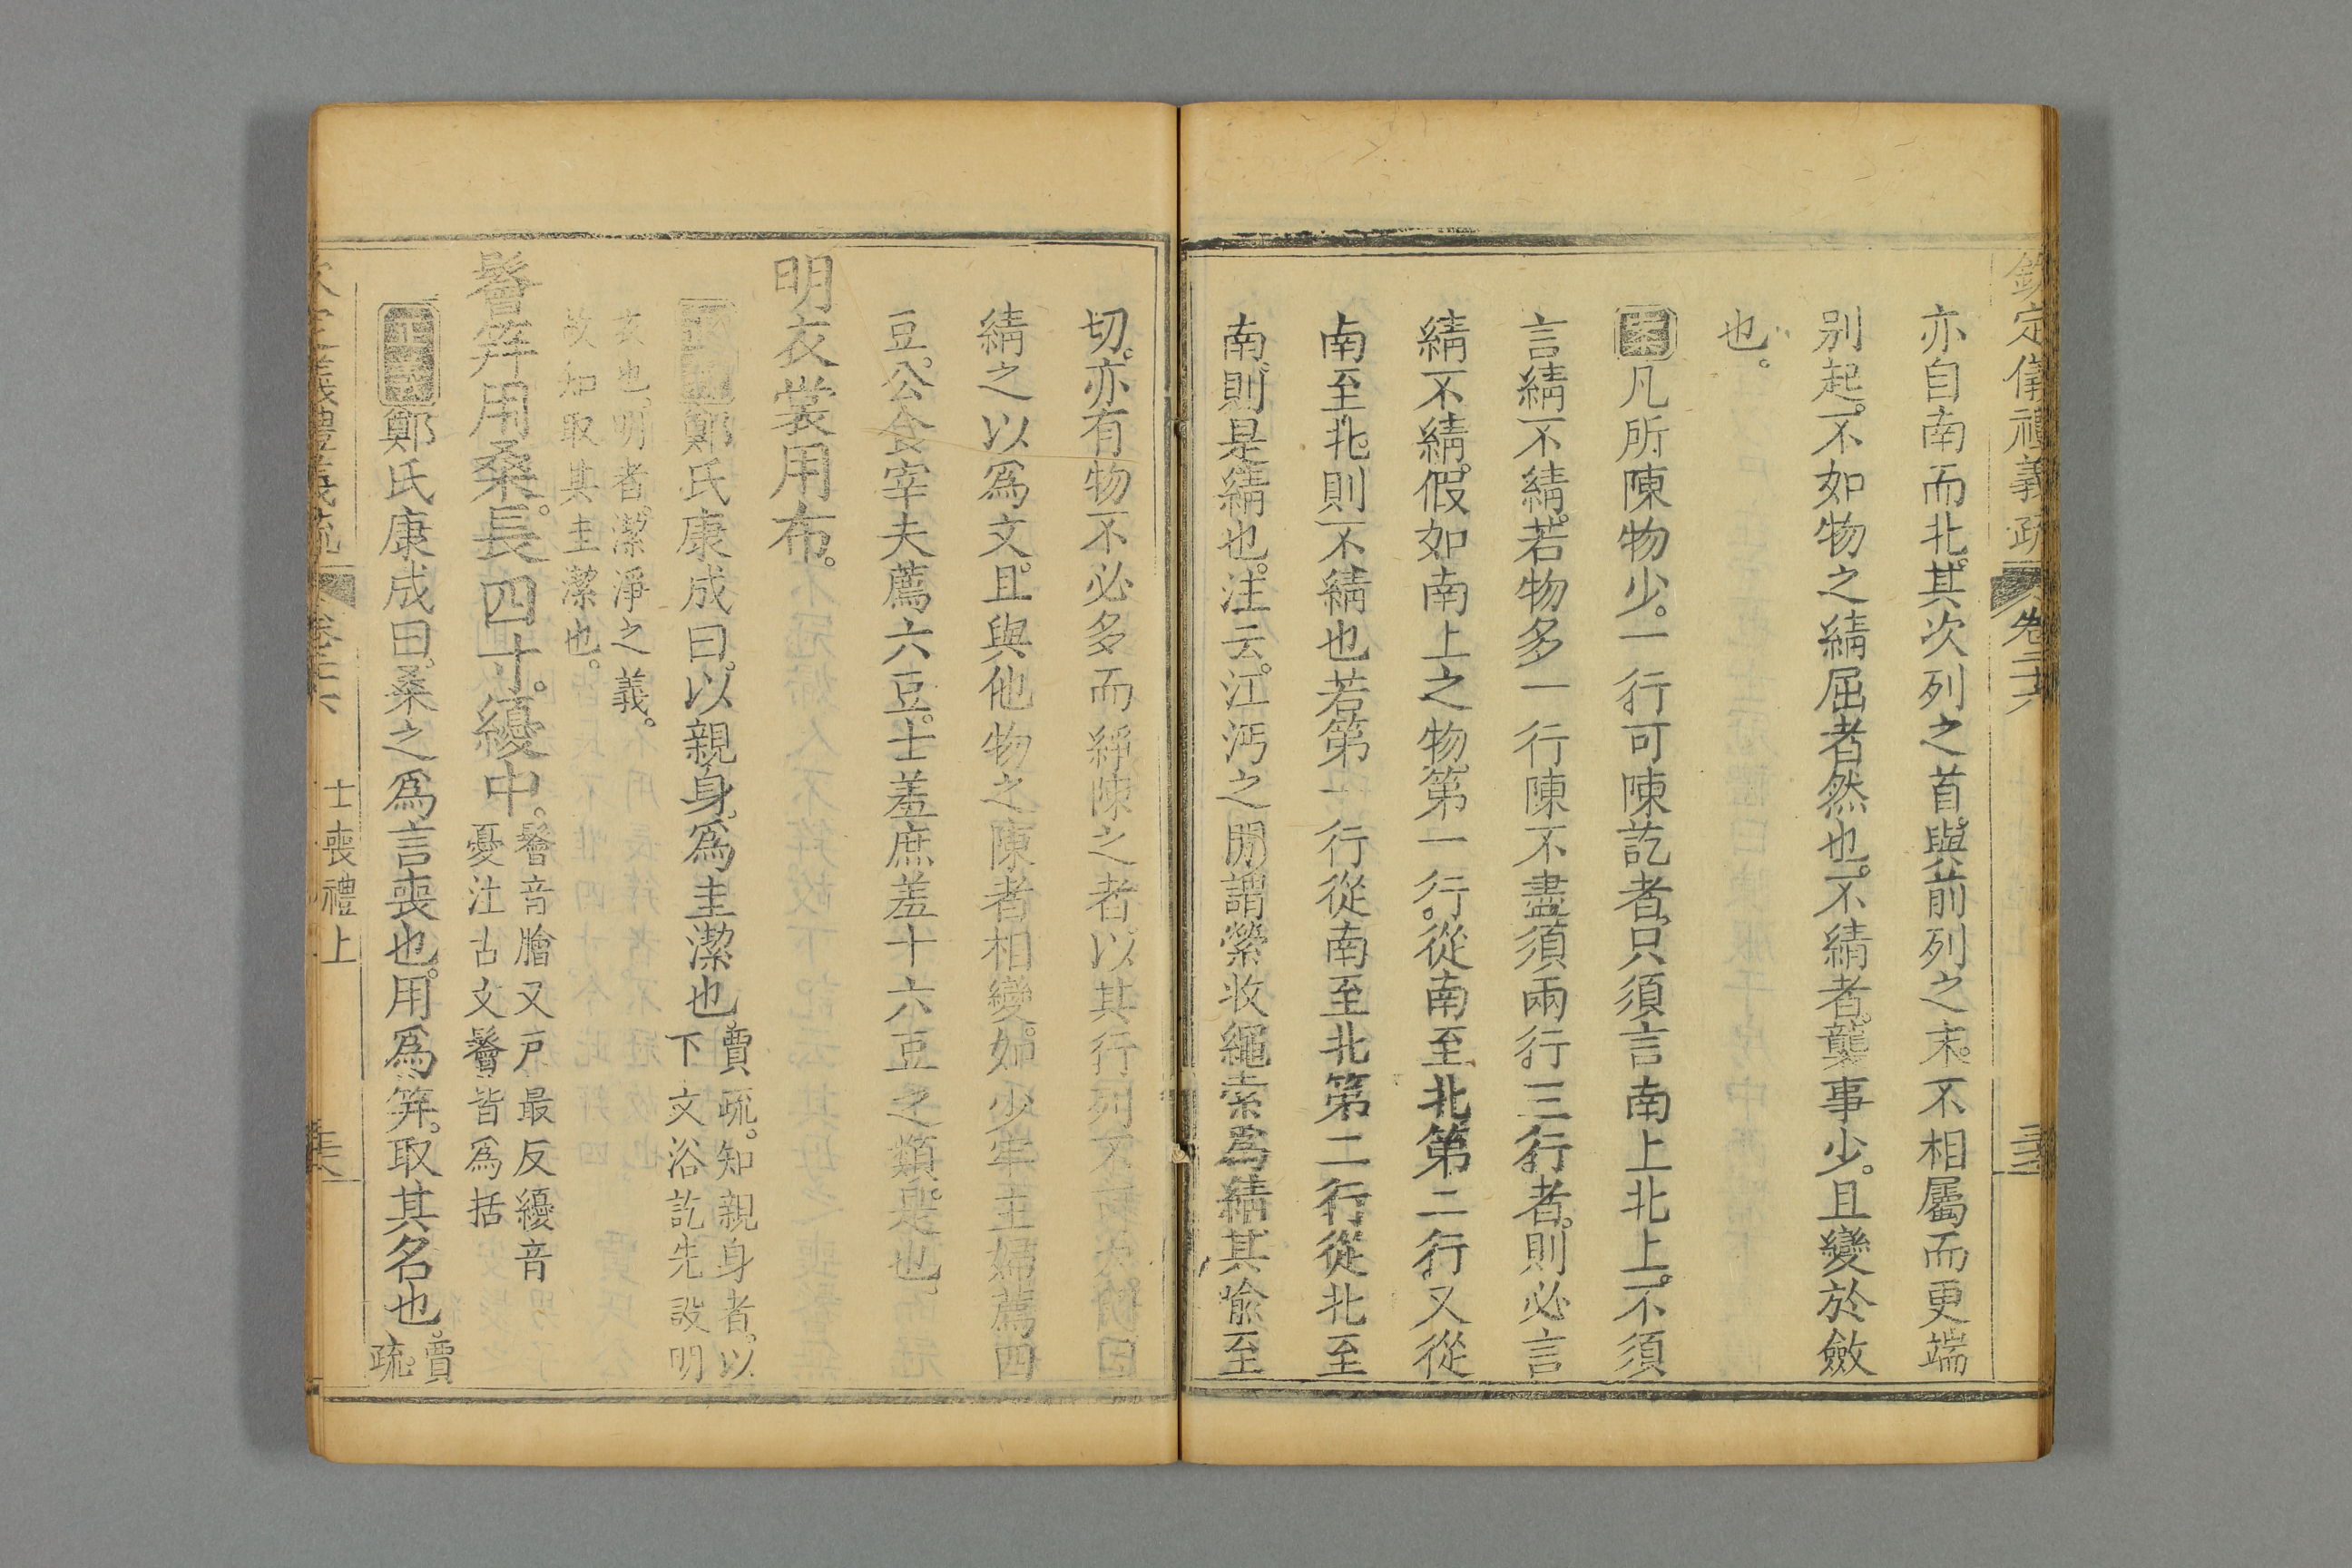 欽定儀禮義疏 卷二十六
亦自南而北。其次列之首。與前列之末。不相屬而更端
別起。不如物之綪屈者然也。不綪者。襲事少。且變於斂
也。
案凡所陳物少。一行可陳訖者。只須言南上北上。不須
言綪不綪。若物多一行陳不盡。須兩行三行者。則必言
綪不綪。假如南上之物。第一行。從南至北。第二行。又從
南至北。則不綪也。若第一行從南至北。第二行從北至
南。則是綪也。注云。江沔之閒。謂縈收繩索為綪。其愉至
切。亦有物不必多而綪陳之者。以其行列不
綪之以爲文。且與他物之陳者相變。如少牢主婦薦四
豆。公食宰夫薦六豆。士羞庶羞十六豆之類。是也。
明衣裳用布。
鄭氏康成曰。以親身。爲主潔也。賈疏。知親身者。以
下文浴訖先設明
衣也。明者。潔淨之義。
故知取其主潔也。
鬠筓用桑。長四寸。纋中。鬠音膾又戸最反纋音
憂注古文鬠皆爲括
正義鄭氏康成曰。桑之爲言喪也。用爲筓。取其名也。賈
疏。
義禮義疏 卷二十六 士喪禮上